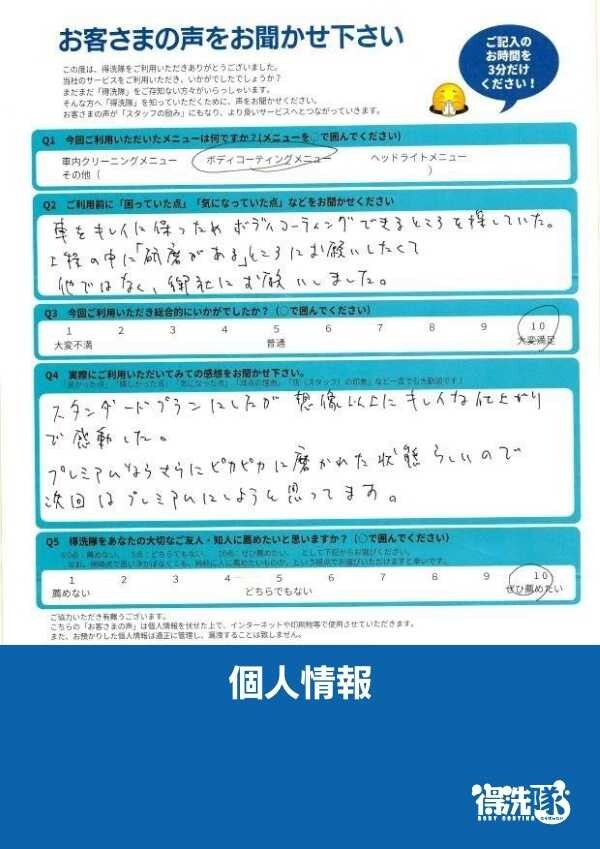 お客さまの声をお聞かせ下さい
ご記入の
お時間を
3分だけ
ください！
この度は、得洗隊をご利用いただきありがとうございました。
当社のサービスをご利用いただき、いかがでしたでしょうか？
まだまだ「得洗隊」をご存知ない方々がいらっしゃいます。
そんな方へ「得洗隊」を知っていただくために、声をお聞かせください。
お客さまの声が「スタッフの励み」にもなり、より良いサービスへとつながっていきます。
Q1 今回ご利用いただいたメニューは何ですか？（メニューを○で囲んでください）
車内クリーニングメニュー ボディコーティングメニュー ヘッドライトメニュー
その他（ ）
Q2 ご利用前に「困っていた点」「気になっていた点」などをお聞かせください
車をキレイに保つためボディコーティングできるところを探していた。
工程の中に「研磨がある」ところにお願いしたくて
他ではなく、御社にお願いしました。
Q3 今回ご利用いただき総合的にいかがでしたか？（○で囲んでください）
1 2 3 4 5 6 7 8 9 10
大変不満 普通 大変満足
Q4 実際にご利用いただいてみての感想をお聞かせ下さい。
「良かった点」「嬉しかった点」「気になった点」「満点の理由」「店（スタッフ）の印象」など一言でも大歓迎です！
スタンダードプランにしたが想像以上にキレイな仕上がり
で感動した。
プレミアムならさらにピカピカに磨かれた状態らしいので
次回はプレミアムにしようと思ってます。
Q5 得洗隊をあなたの大切なご友人・知人に薦めたいと思いますか？（○で囲んでください）
1 2 3 4 5 6 7 8 9 10
薦めない どちらでもない ぜひ薦めたい
ご協力いただき有難うございます。
こちらの「お客さまの声」は個人情報を伏せた上で、インターネットや印刷物等で使用させていただきます。
また、お預かりした個人情報は適正に管理し、漏洩することは致しません。
個人情報
得洗隊
BODY COATING